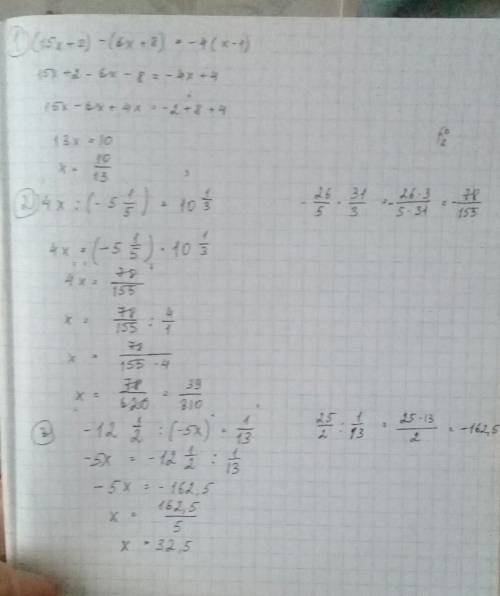 1) (15x+2) - (6x+8) = -4(x-1)
15x+2-6x-8 = -4x+4
15x-6x+4x = -2+8+4
13x = 10
x = 10/13
2) 4x : (-5 1/5) = 10 1/3
-26/5 · 31/3 = -26·3/5·31 = -78/155
4x = (-5 1/5) · 10 1/3
4x = 78/155
x = 78/155 : 4/1
x = 78/155·4
x = 78/6200 = 39/310
3) -12 1/2 : (-5x) = 1/13
25/2 : 1/13 = 25·13/2 = -162,5
-5x = -12 1/2 : 1/13
-5x = -162,5
x = 162,5/5
x = 32,5